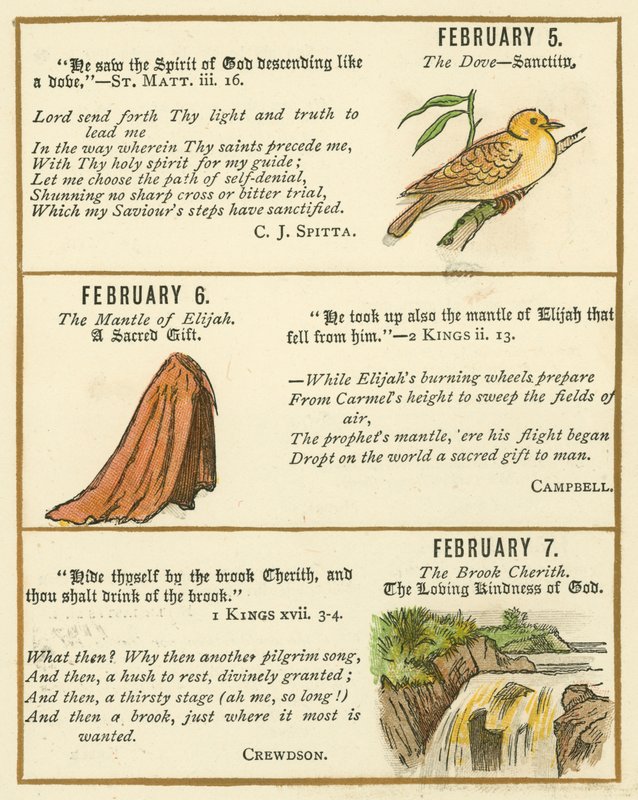 FEBRUARY 5.
The Dove—Sanctity.
"He saw the Spirit of God descending like
a dove,"—ST. MATT. iii. 16.
Lord send forth Thy light and truth to
lead me
In the way wherein Thy saints precede me,
With Thy holy spirit for my guide;
Let me choose the path of self-denial,
Shunning no sharp cross or bitter trial,
Which my Saviour's steps have sanctified.
C. J. SPITTA.
FEBRUARY 6.
The Mantle of Elijah.
A Sacred Gift.
"He took up also the mantle of Elijah that
fell from him."—2 KINGS ii. 13.
—While Elijah's burning wheels prepare
From Carmel's height to sweep the fields of
air,
The prophet's mantle, 'ere his flight began
Dropt on the world a sacred gift to man.
CAMPBELL.
FEBRUARY 7.
The Brook Cherith.
The Loving Kindness of God.
"Hide thyself by the brook Cherith, and
thou shalt drink of the brook."
1 KINGS xvii. 3-4.
What then? Why then another pilgrim song,
And then, a hush to rest, divinely granted;
And then, a thirsty stage (ah me, so long!)
And then a brook, just where it most is
wanted.
CREWDSON.